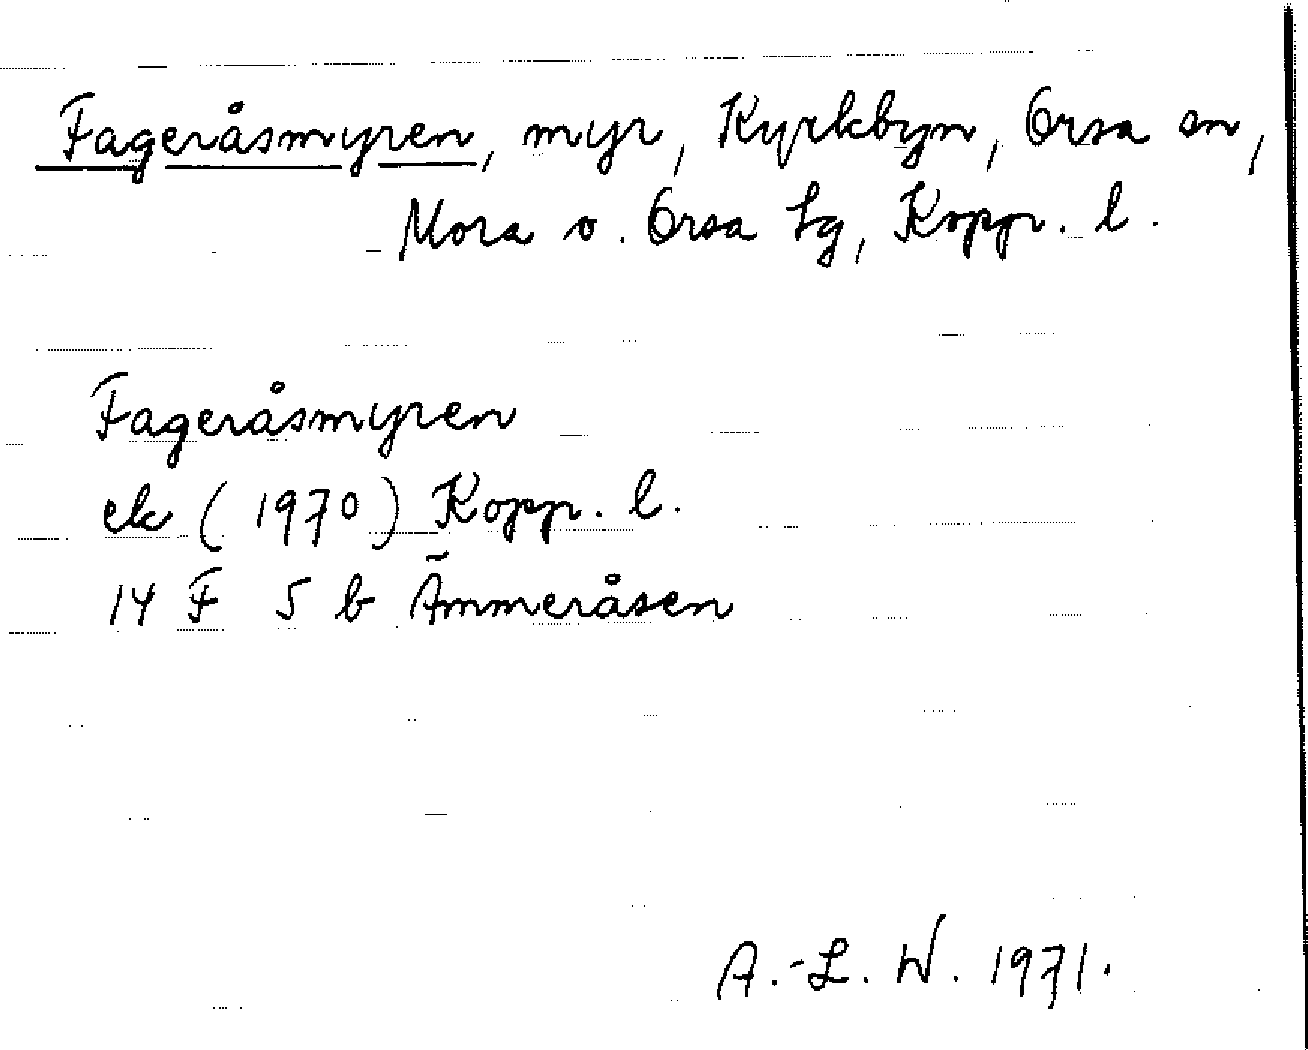 Fageråsmyren, myr, Kyrkbyn, Orsa sn,
Mora o. Orsa tg, Kopp. l.
Fageråsmyren
ek (1970) Kopp. l.
14 F 5 b Ämmeråsen
A.-L. W. 1971.